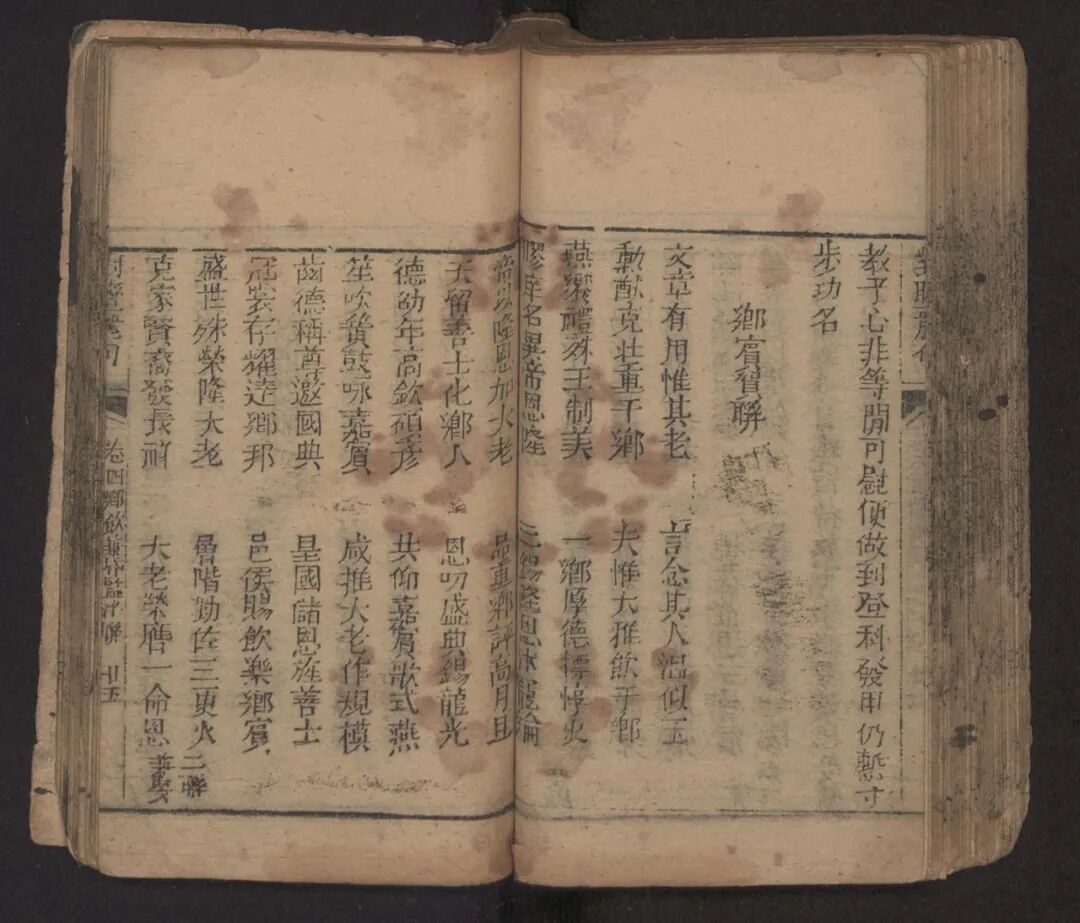 教子心非等閒可慰便做到登科發甲仍慙寸
步功名
鄉賓賀聯
文章有用惟其老 言念其人溫似玉
勳猷克壯重于鄉 夫惟大雅飲于鄉
燕樂禮殊王制美 一鄉厚德標惇火
膠庠名選帝恩隆
隆恩加大老 品重鄉評高月旦
天留善士化鄉人 恩叨盛典錫龍光
德劭年高欽碩彥 共仰嘉賓歌式燕
笙吹簧鼓咏嘉賓 咸推大老作規模
齒德稱尊邀國典 皇國儲恩旌善士
冠裳存耀達鄉邦 邑侯賜飲樂鄉賓
盛世殊榮隆大老 曾階勷佐三更火 二聯
克家賢裔發長祥 大老榮膺一命恩
卷四鄉飲 聯 廿五